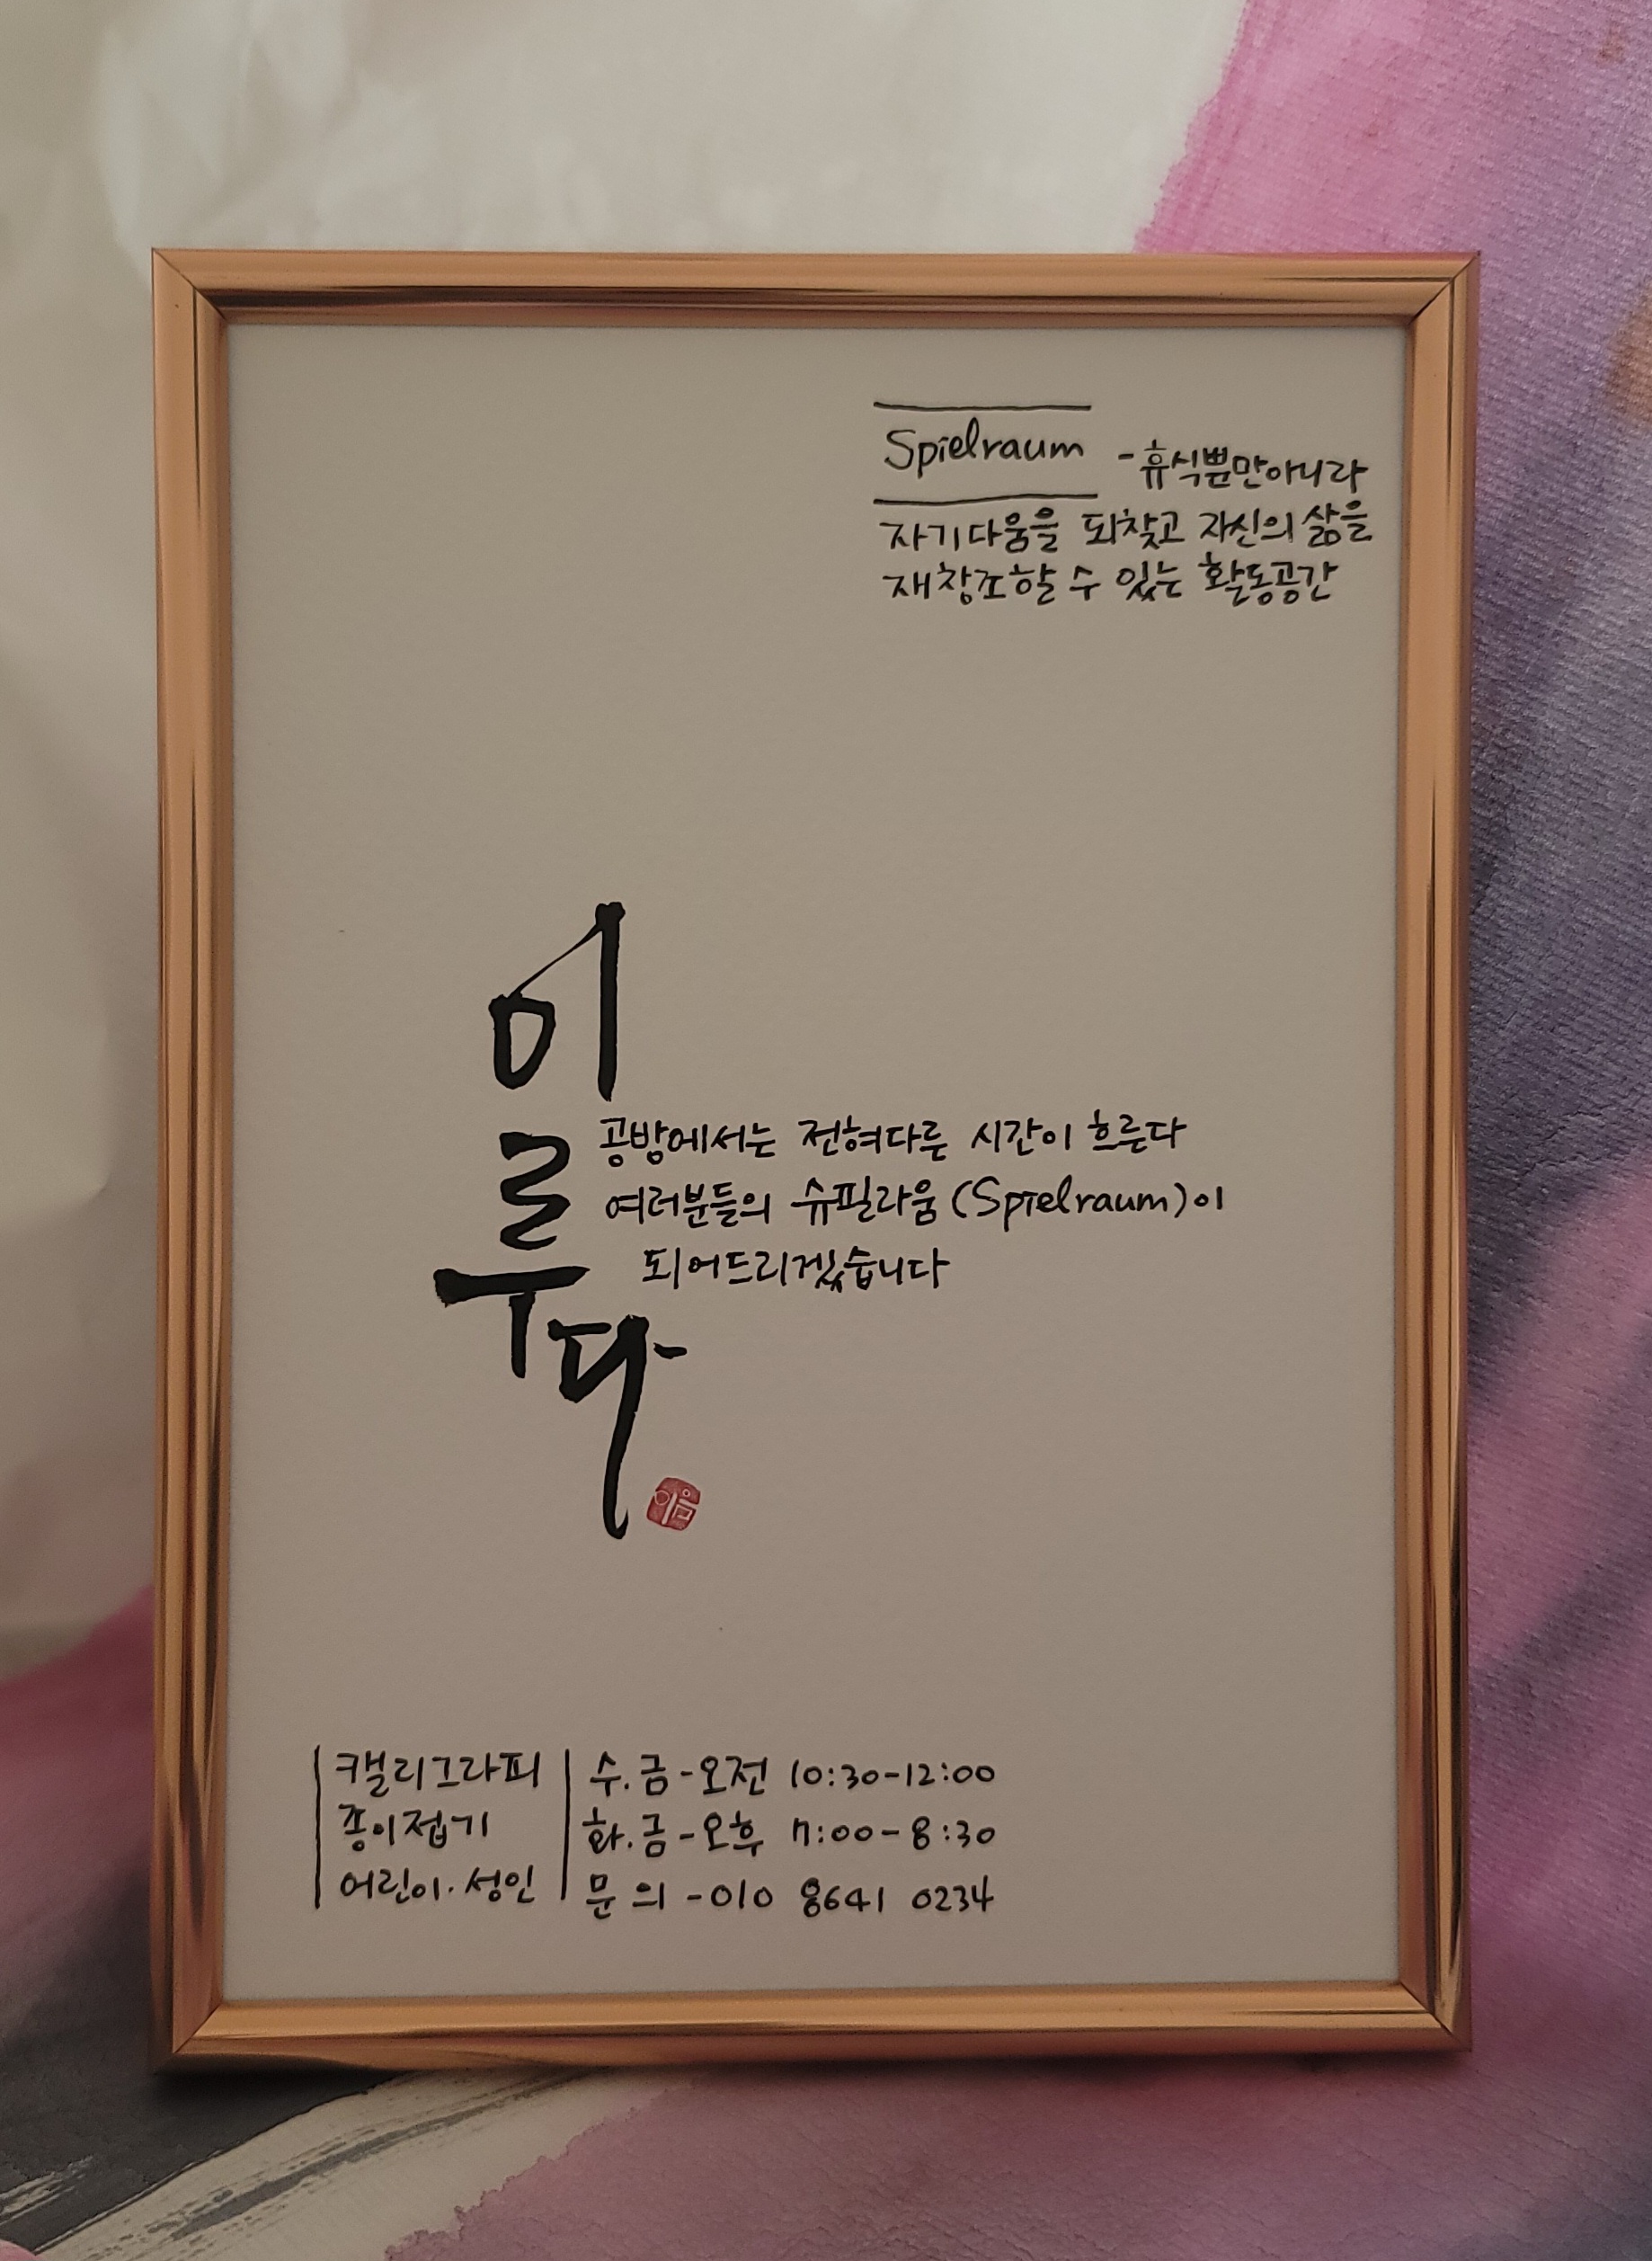 Spielraum - 휴식뿐만아니라
자기다움을 되찾고 자신의 삶을
재창조할 수 있는 활동공간
이루다
공방에서는 전혀다른 시간이 흐른다
여러분들의 슈필라움 (Spielraum)이
되어드리겠습니다
이음
캘리그라피 수.금-오전 10:30-12:00
종이접기 화.금-오후 7:00-8:30
어린이.성인 문의-010 8641 0234